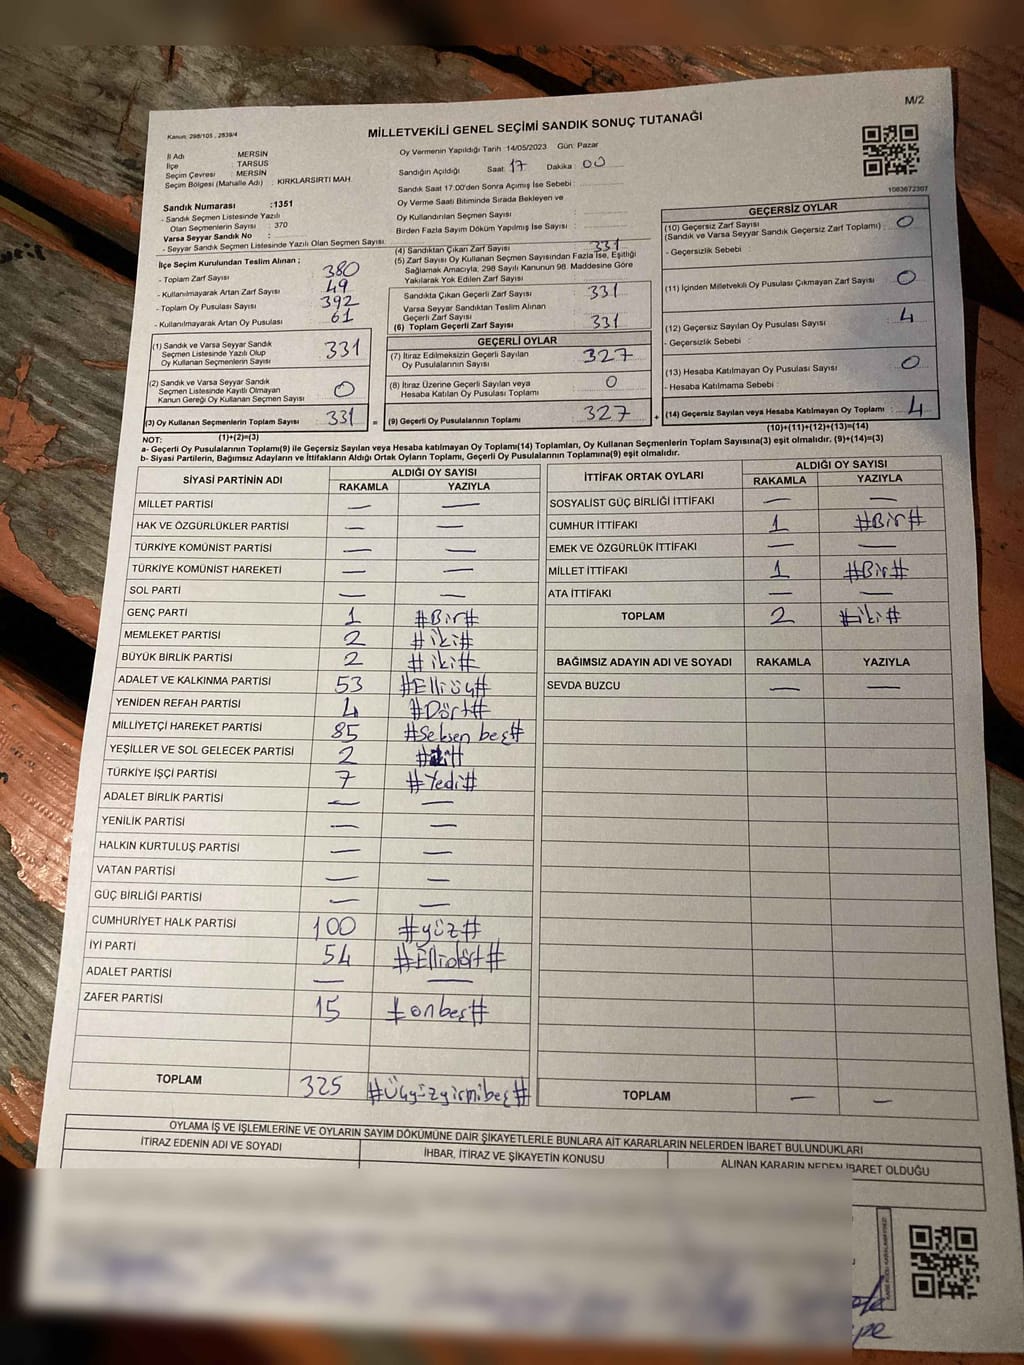 M/2
Kanun: 298/105 , 2839/4
MİLLETVEKİLİ GENEL SEÇİMİ SANDIK SONUÇ TUTANAĞI
İl Adı : MERSİN
İlçe : TARSUS
Seçim Çevresi : MERSİN
Seçim Bölgesi (Mahalle Adı) : KIRKLARSIRTI MAH.
Sandık Numarası :1351
- Sandık Seçmen Listesinde Yazılı
Olan Seçmenlerin Sayısı : 370
Varsa Seyyar Sandık No :
- Seyyar Sandık Seçmen Listesinde Yazılı Olan Seçmen Sayısı:
Oy Vermenin Yapıldığı Tarih :14/05/2023 Gün: Pazar
Sandığın Açıldığı Saat: 17 Dakika : 00
Sandık Saat 17:00'den Sonra Açımış İse Sebebi :
Oy Verme Saati Bitiminde Sırada Bekleyen ve
Oy Kullandırılan Seçmen Sayısı :
Birden Fazla Sayım Döküm Yapılmış İse Sayısı :
1083672307
İlçe Seçim Kurulundan Teslim Alınan ;
- Toplam Zarf Sayısı : 380
- Kullanılmayarak Artan Zarf Sayısı : 49
- Toplam Oy Pusulası Sayısı : 392
- Kullanılmayarak Artan Oy Pusulası : 61
(1) Sandık ve Varsa Seyyar Sandık
Seçmen Listesinde Yazılı Olup
Oy Kullanan Seçmenlerin Sayısı : 331
(2) Sandık ve Varsa Seyyar Sandık
Seçmen Listesinde Kayıtlı Olmayan
Kanun Gereği Oy Kullanan Seçmen Sayısı : 0
(3) Oy Kullanan Seçmenlerin Toplam Sayısı : 331
(1)+(2)=(3)
(4) Sandıktan Çıkan Zarf Sayısı : 331
(5) Zarf Sayısı Oy Kullanan Seçmen Sayısından Fazla İse, Eşitliği
Sağlamak Amacıyla, 298 Sayılı Kanunun 98. Maddesine Göre
Yakılarak Yok Edilen Zarf Sayısı :
Sandıkta Çıkan Geçerli Zarf Sayısı : 331
Varsa Seyyar Sandıktan Teslim Alınan
Geçerli Zarf Sayısı :
(6) Toplam Geçerli Zarf Sayısı : 331
GEÇERLİ OYLAR
(7) İtiraz Edilmeksizin Geçerli Sayılan
Oy Pusulalarının Sayısı : 327
(8) İtiraz Üzerine Geçerli Sayılan veya
Hesaba Katılan Oy Pusulası Toplamı : 0
(9) Geçerli Oy Pusulalarının Toplamı : 327
GEÇERSİZ OYLAR
(10) Geçersiz Zarf Sayısı
(Sandık ve Varsa Seyyar Sandık Geçersiz Zarf Toplamı) : 0
- Geçersizlik Sebebi :
(11) İçinden Milletvekili Oy Pusulası Çıkmayan Zarf Sayısı : 0
(12) Geçersiz Sayılan Oy Pusulası Sayısı : 4
- Geçersizlik Sebebi :
(13) Hesaba Katılmayan Oy Pusulası Sayısı : 0
- Hesaba Katılmama Sebebi :
(14) Geçersiz Sayılan veya Hesaba Katılmayan Oy Toplamı : 4
(10)+(11)+(12)+(13)=(14)
NOT:
a- Geçerli Oy Pusulalarının Toplamı(9) ile Geçersiz Sayılan veya Hesaba katılmayan Oy Toplamı(14) Toplamları, Oy Kullanan Seçmenlerin Toplam Sayısına(3) eşit olmalıdır. (9)+(14)=(3)
b- Siyasi Partilerin, Bağımsız Adayların ve İttifakların Aldığı Ortak Oyların Toplamı, Geçerli Oy Pusulalarının Toplamına(9) eşit olmalıdır.
SİYASİ PARTİNİN ADI ALDIĞI OY SAYISI
RAKAMLA YAZIYLA
MİLLET PARTİSİ — —
HAK VE ÖZGÜRLÜKLER PARTİSİ — —
TÜRKİYE KOMÜNİST PARTİSİ — —
TÜRKİYE KOMÜNİST HAREKETİ — —
SOL PARTİ — —
GENÇ PARTİ 1 #Bir#
MEMLEKET PARTİSİ 2 #iki#
BÜYÜK BİRLİK PARTİSİ 2 #iki#
ADALET VE KALKINMA PARTİSİ 53 #Elliüç#
YENİDEN REFAH PARTİSİ 4 #Dört#
MİLLİYETÇİ HAREKET PARTİSİ 85 #Seksen beş#
YEŞİLLER VE SOL GELECEK PARTİSİ 2
TÜRKİYE İŞÇİ PARTİSİ 7 #Yedi#
ADALET BİRLİK PARTİSİ — —
YENİLİK PARTİSİ — —
HALKIN KURTULUŞ PARTİSİ — —
VATAN PARTİSİ — —
GÜÇ BİRLİĞİ PARTİSİ — —
CUMHURİYET HALK PARTİSİ 100 #yüz#
İYİ PARTİ 54 #Ellidört#
ADALET PARTİSİ — —
ZAFER PARTİSİ 15 #onbeş#
TOPLAM 325 #Üçyüzyirmibeş#
İTTİFAK ORTAK OYLARI ALDIĞI OY SAYISI
RAKAMLA YAZIYLA
SOSYALİST GÜÇ BİRLİĞİ İTTİFAKI — —
CUMHUR İTTİFAKI 1 #Bir#
EMEK VE ÖZGÜRLÜK İTTİFAKI — —
MİLLET İTTİFAKI 1 #Bir#
ATA İTTİFAKI — —
TOPLAM 2 #iki#
BAĞIMSIZ ADAYIN ADI VE SOYADI RAKAMLA YAZIYLA
SEVDA BUZCU — —
TOPLAM — —
OYLAMA İŞ VE İŞLEMLERİNE VE OYLARIN SAYIM DÖKÜMÜNE DAİR ŞİKAYETLERLE BUNLARA AİT KARARLARIN NELERDEN İBARET BULUNDUKLARI
İTİRAZ EDENİN ADI VE SOYADI İHBAR, İTİRAZ VE ŞİKAYETİN KONUSU ALINAN KARARIN NEDEN İBARET OLDUĞU